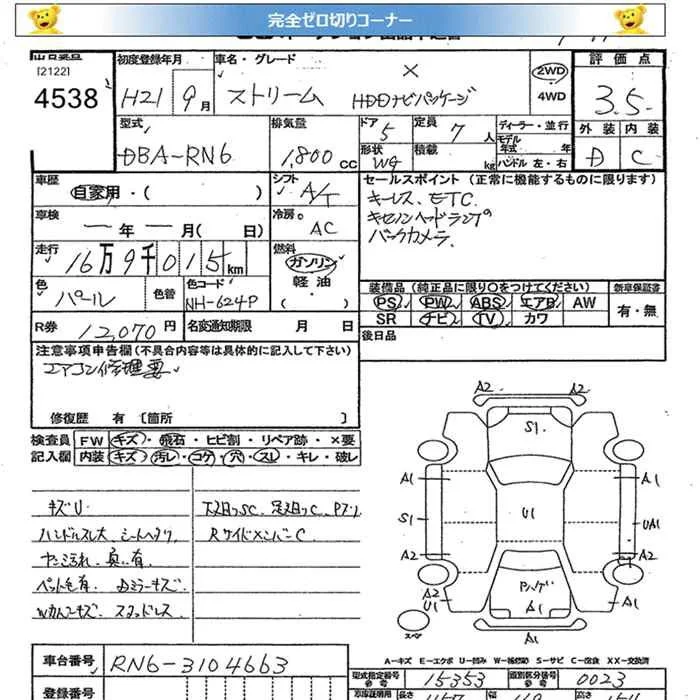 完全ゼロ切りコーナー
[2122]
4538
初度登録年月
H21 9月
車名・グレード
ストリーム × HDDナビパッケージ
2WD
4WD
評価点
3.5
外装 内装
D C
型式
DBA-RN6
排気量
1,800cc
ドア 5
形状 WG
定員 7人
積載 kg
ディーラー・並行
モデル年式 年
ハンドル 左・右
車歴
自家用・( )
シフト
A/T
車検
ー年ー月( 日)
冷房
AC
走行
16万9千015km
燃料
ガソリン
軽油
( )
色
パール
色替
色コード
NH-624P
R券 12,070円
名変通知期限 月 日
セールスポイント(正常に機能するものに限ります)
キーレス、ETC
キセノンヘッドランプ
バックカメラ
装備品(純正品に限り○をつけてください)
PS PW ABS エアB AW
SR ナビ TV カワ
新車保証書
有・無
後日品
注意事項申告欄(不具合内容等は具体的に記入して下さい)
エアコン修理要
修復歴 有 [箇所 ]
検査員記入欄
FW キズ・飛石・ヒビ割・リペア跡・×要
内装 キズ・汚レ・コゲ・穴・スレ・キレ・破レ
キズU
ハンドルスレ大 シートヘタリ
ヤニ汚れ 臭い有
ペット毛有 Dミラーキズ
Wガムコキズ スタッドレス
下廻りSC 足廻りC
RサイドメンバーC
A2 A2
S1
A1 A1
S1 U1 UA1
A2 A2
A2
U1
A1
A1
A1
スペア
A-キズ E-エクボ U-凹み W-補修跡 S-サビ C-腐食 XX-交換済
車台番号 RN6-3104663
型式指定番号 15353
類別区分番号 0023
登録番号